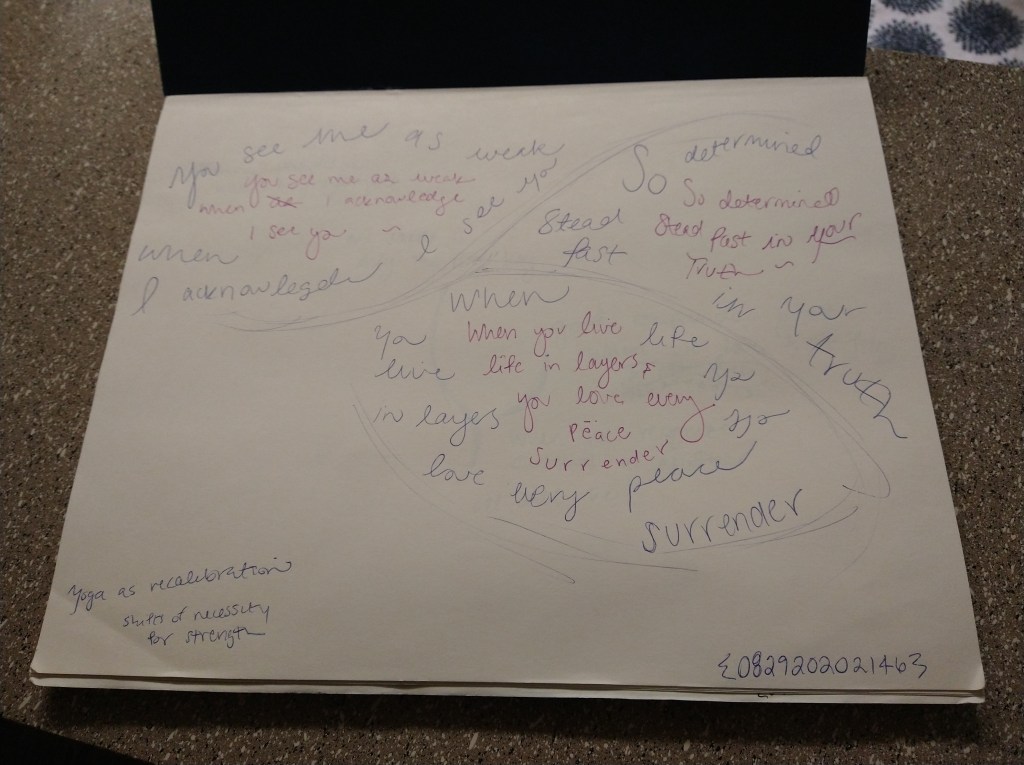 You see me as weak
when
I acknowledge I see you
you see me as weak
when I acknowledge
I see you ~
So determined
Stead
fast
in your
truth
So determined
Stead fast in your
Truth ~
When
You
live life
in layers you
love every peace
surrender
When you live
life in layers,
you love every
peace
surrender
Yoga as recalibration
shifts of necessity
for strength
{082920202146}